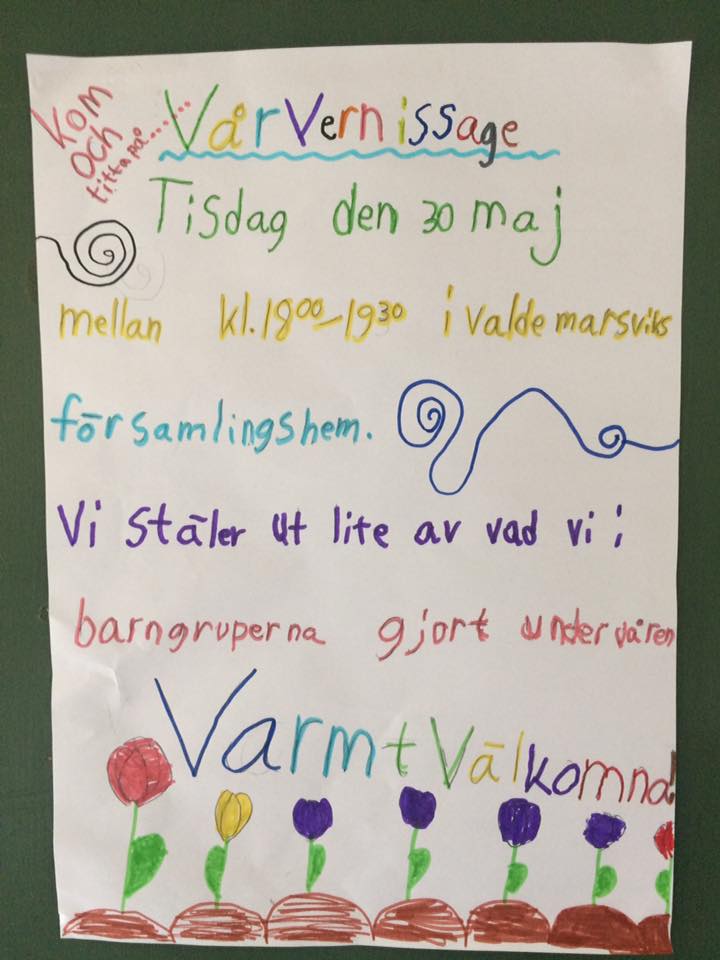 Kom
och
titta på......
VårVernissage
Tisdag den 30 maj
mellan kl. 1800-1930 i valdemarsviks
församlingshem.
Vi stäler ut lite av vad vi i
barngruperna gjort under våren
Varmt Välkomna!